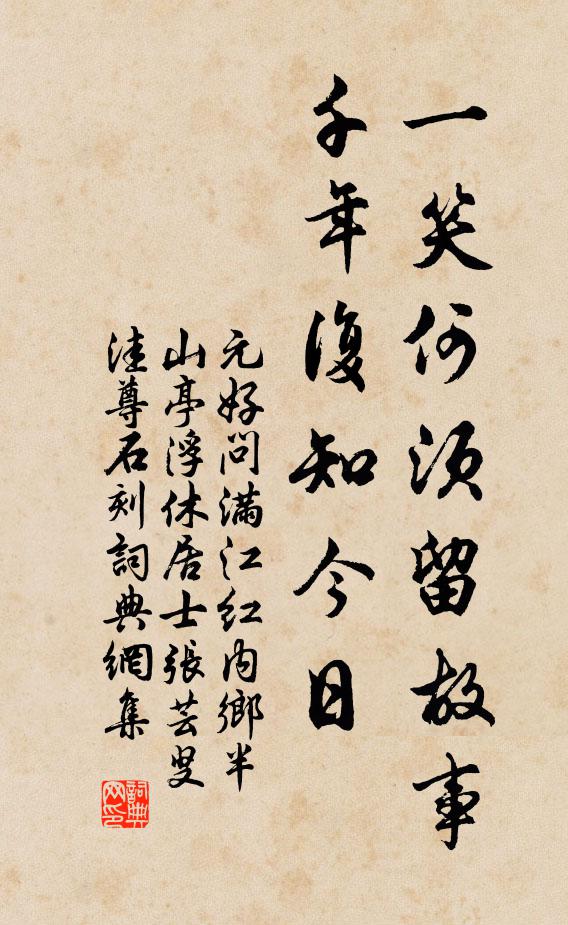 一笑何須留故事
千年復知今日
元好問滿江紅內鄉半
山亭浮休居士張芸叟
洼尊石刻詞典網集
詞典
网印